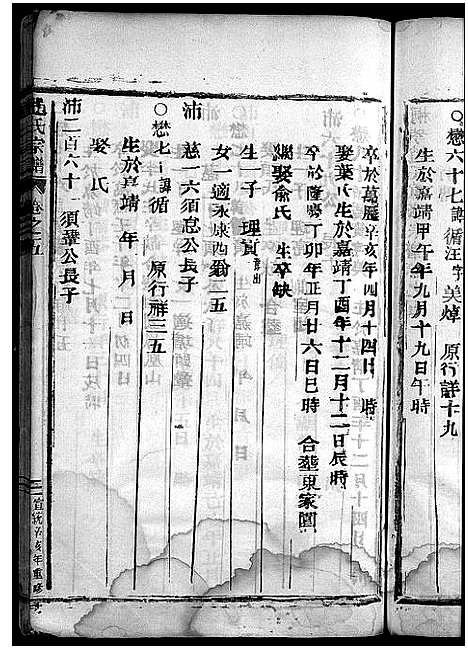 ○懋六十七諱循汪字美焯 原行詳十九
生於嘉靖甲午年九月十九日午時
卒於萬曆辛亥年四月十四日 時
娶葉氏生於嘉靖丁酉年十二月十二日辰時
卒於隆慶丁卯年正月廿六日巳時 合塟東家園
繼娶俞氏 生卒缺
生一子 理 出
女一適永康西
沛 慈一六須 公長子
○懋七 諱循 原行祥三五
生於嘉靖 年 月 日
娶 氏
沛二百六十 須 公長子
氏宗譜 卷之五
宣統辛亥年重修